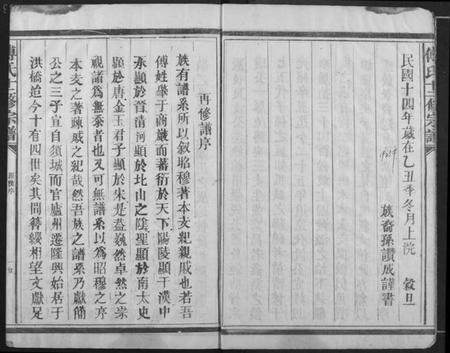 傅氏十修宗譜
民國十四年歲在乙丑季冬月上浣 穀旦
族裔孫讚成謹書
再修譜序
族有譜系所以叙昭穆著本支紀親戚也若吾
傅姓肇于商巖而蕃衍於天下陽陵顯于漢中
永顯於晉清河顯於北山之陰聖顯於南太史
顯於唐金玉君子顯於朱是益巍然卓然之崇
視諸爲無忝者也又可無譜系以爲昭穆之序
本支之著踈戚之紀哉然吾族之譜系乃獻簡
公之三子宣自須城而官廬州遷隆興始居于
洪橋迨今十有四世矣其間簪纓相望文獻足
傅氏十修宗譜